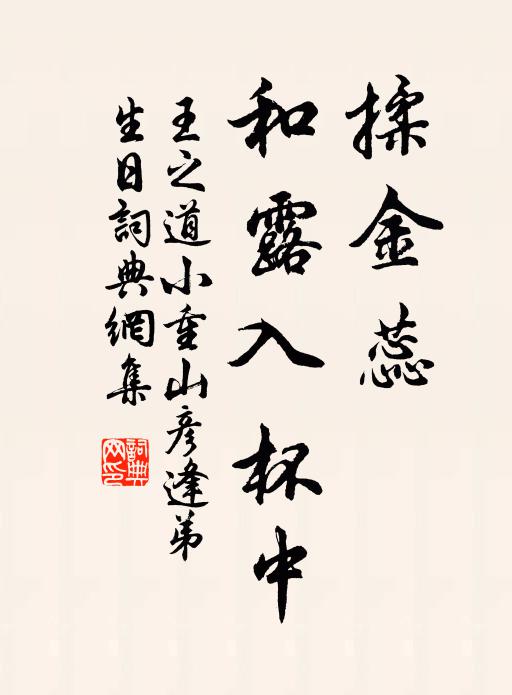 揉金蕊
和露入杯中
王之道小重山彦逢弟
生日詞典網集
詞典
网印